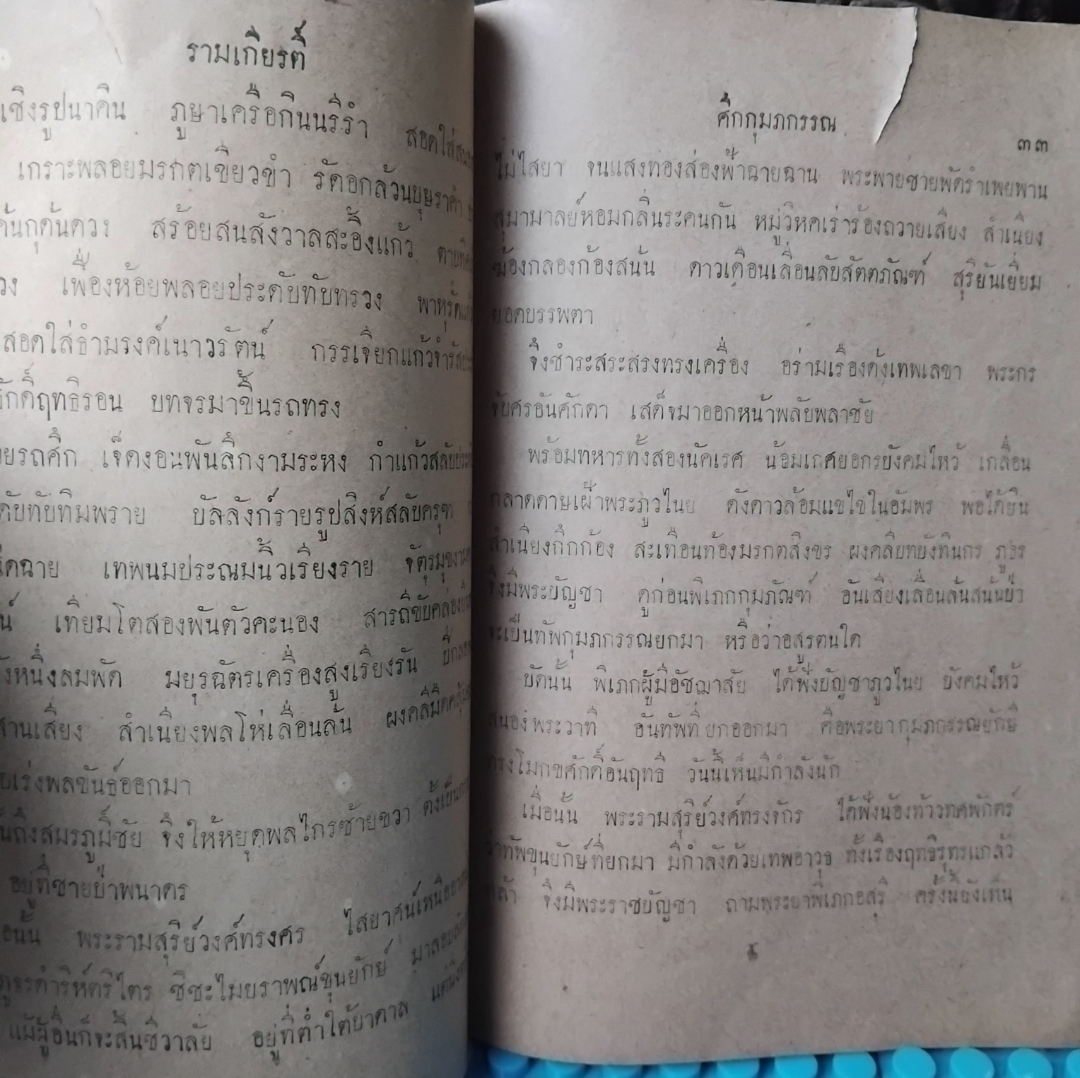 รามเกียรติ์
เชิงรูปนาคิน ภูษาเครือกินนรีรำ สอดใส่
เกราะพลอยมรกตเขียวขำ รัดอกล้วนบุษราคำ
สร้อยสนสังวาลสะอิ้งแก้ว ตาบทิศ
เฟื่องห้อยพลอยประดับทับทรวง พาหุรัด
สอดใส่ธำมรงค์เนาวรัตน์ กรรเจียกแก้วจำรัส
ฤทธิรอน บทจรมาขึ้นรถทรง
รถศึก เจ็ดงอนพันลึกงามระหง กำแก้วสลับ
ทับทิมพราย บัลลังก์รายรูปสิงห์สลับครุฑ
ฉาย เทพนมประณมนิ้วเรียงราย จัตุรมุข
เทียมโตสองพันตัวคะนอง สารถีขับคล่อง
หนึ่งลมพัด มยุรฉัตรเครื่องสูงเรียงรัน
สานเสียง สำเนียงพลโห่เลื่อนลั่น ผงคลีมืด
เร่งพลขันธ์ออกมา
ถึงสมรภูมิ์ชัย จึงให้หยุดพลไกรซ้ายขวา ตั้งเป็น
อยู่ที่ชายป่าพนาคร
พระรามสุริย์วงศ์ทรงศร ไสยาศน์เหนือ
ดำริห์ตริไตร ชิชะไมยราพณ์ขุนยักษ์ มาลอบ
แม้ผู้อื่นก็จะสิ้นชีวาลัย อยู่ที่ต่ำใต้บาดาล
ศึกกุมภกรรณ
๓๓
ไม่ไสยา จนแสงทองส่องฟ้าฉายฉาน พระพายชายพัดรำเพยพาน
สุมามาลย์หอมกลิ่นระคนกัน หมู่วิหคเร่าร้องถวายเสียง สำเนียง
ฆ้องกลองก้องสนั่น ดาวเดือนเลื่อนลับสัตตภัณฑ์ สุริยันเยี่ยม
ยอดบรรพตา
จึงชำระสระสรงทรงเครื่อง อร่ามเรืองดั่งเทพเลขา พระกร
จับศรอันศักดา เสด็จมาออกหน้าพลับพลาชัย
พร้อมทหารทั้งสองนัคเรศ น้อมเกศยอกรบังคมไหว้ เกลื่อน
กลาดดาษเฝ้าพระภูวไนย ดังดาวล้อมแขไขในอัมพร พอได้ยิน
สำเนียงกึกก้อง สะเทือนท้องมรกตสิงขร ผงคลีบทบังทินกร ภูธร
จึงมีพระบัญชา ดูก่อนพิเภกกุมภัณฑ์ อันเสียงเลื่อนลั่นสนั่นป่า
จะเป็นทัพกุมภกรรณยกมา หรือว่าอสูรตนใด
บัดนั้น พิเภกผู้มีอัชฌาสัย ได้ฟังบัญชาภูวไนย บังคมไหว้
สนองพระวาที อันทัพที่ยกออกมา คือพระยากุมภกรรณยักษี
ทรงโมกขศักดิ์อันฤทธี วันนี้เห็นมีกำลังนัก
เมื่อนั้น พระรามสุริย์วงศ์ทรงจักร ได้ฟังน้องท้าวทศพักตร์
ว่าทัพขุนยักษ์ที่ยกมา มีกำลังด้วยเทพอาวุธ ทั้งเรืองฤทธิรุทรแกล้ว
กล้า จึงมีพระราชบัญชา ถามพระยาพิเภกอสุรี ครั้งนี้ยังเห็น